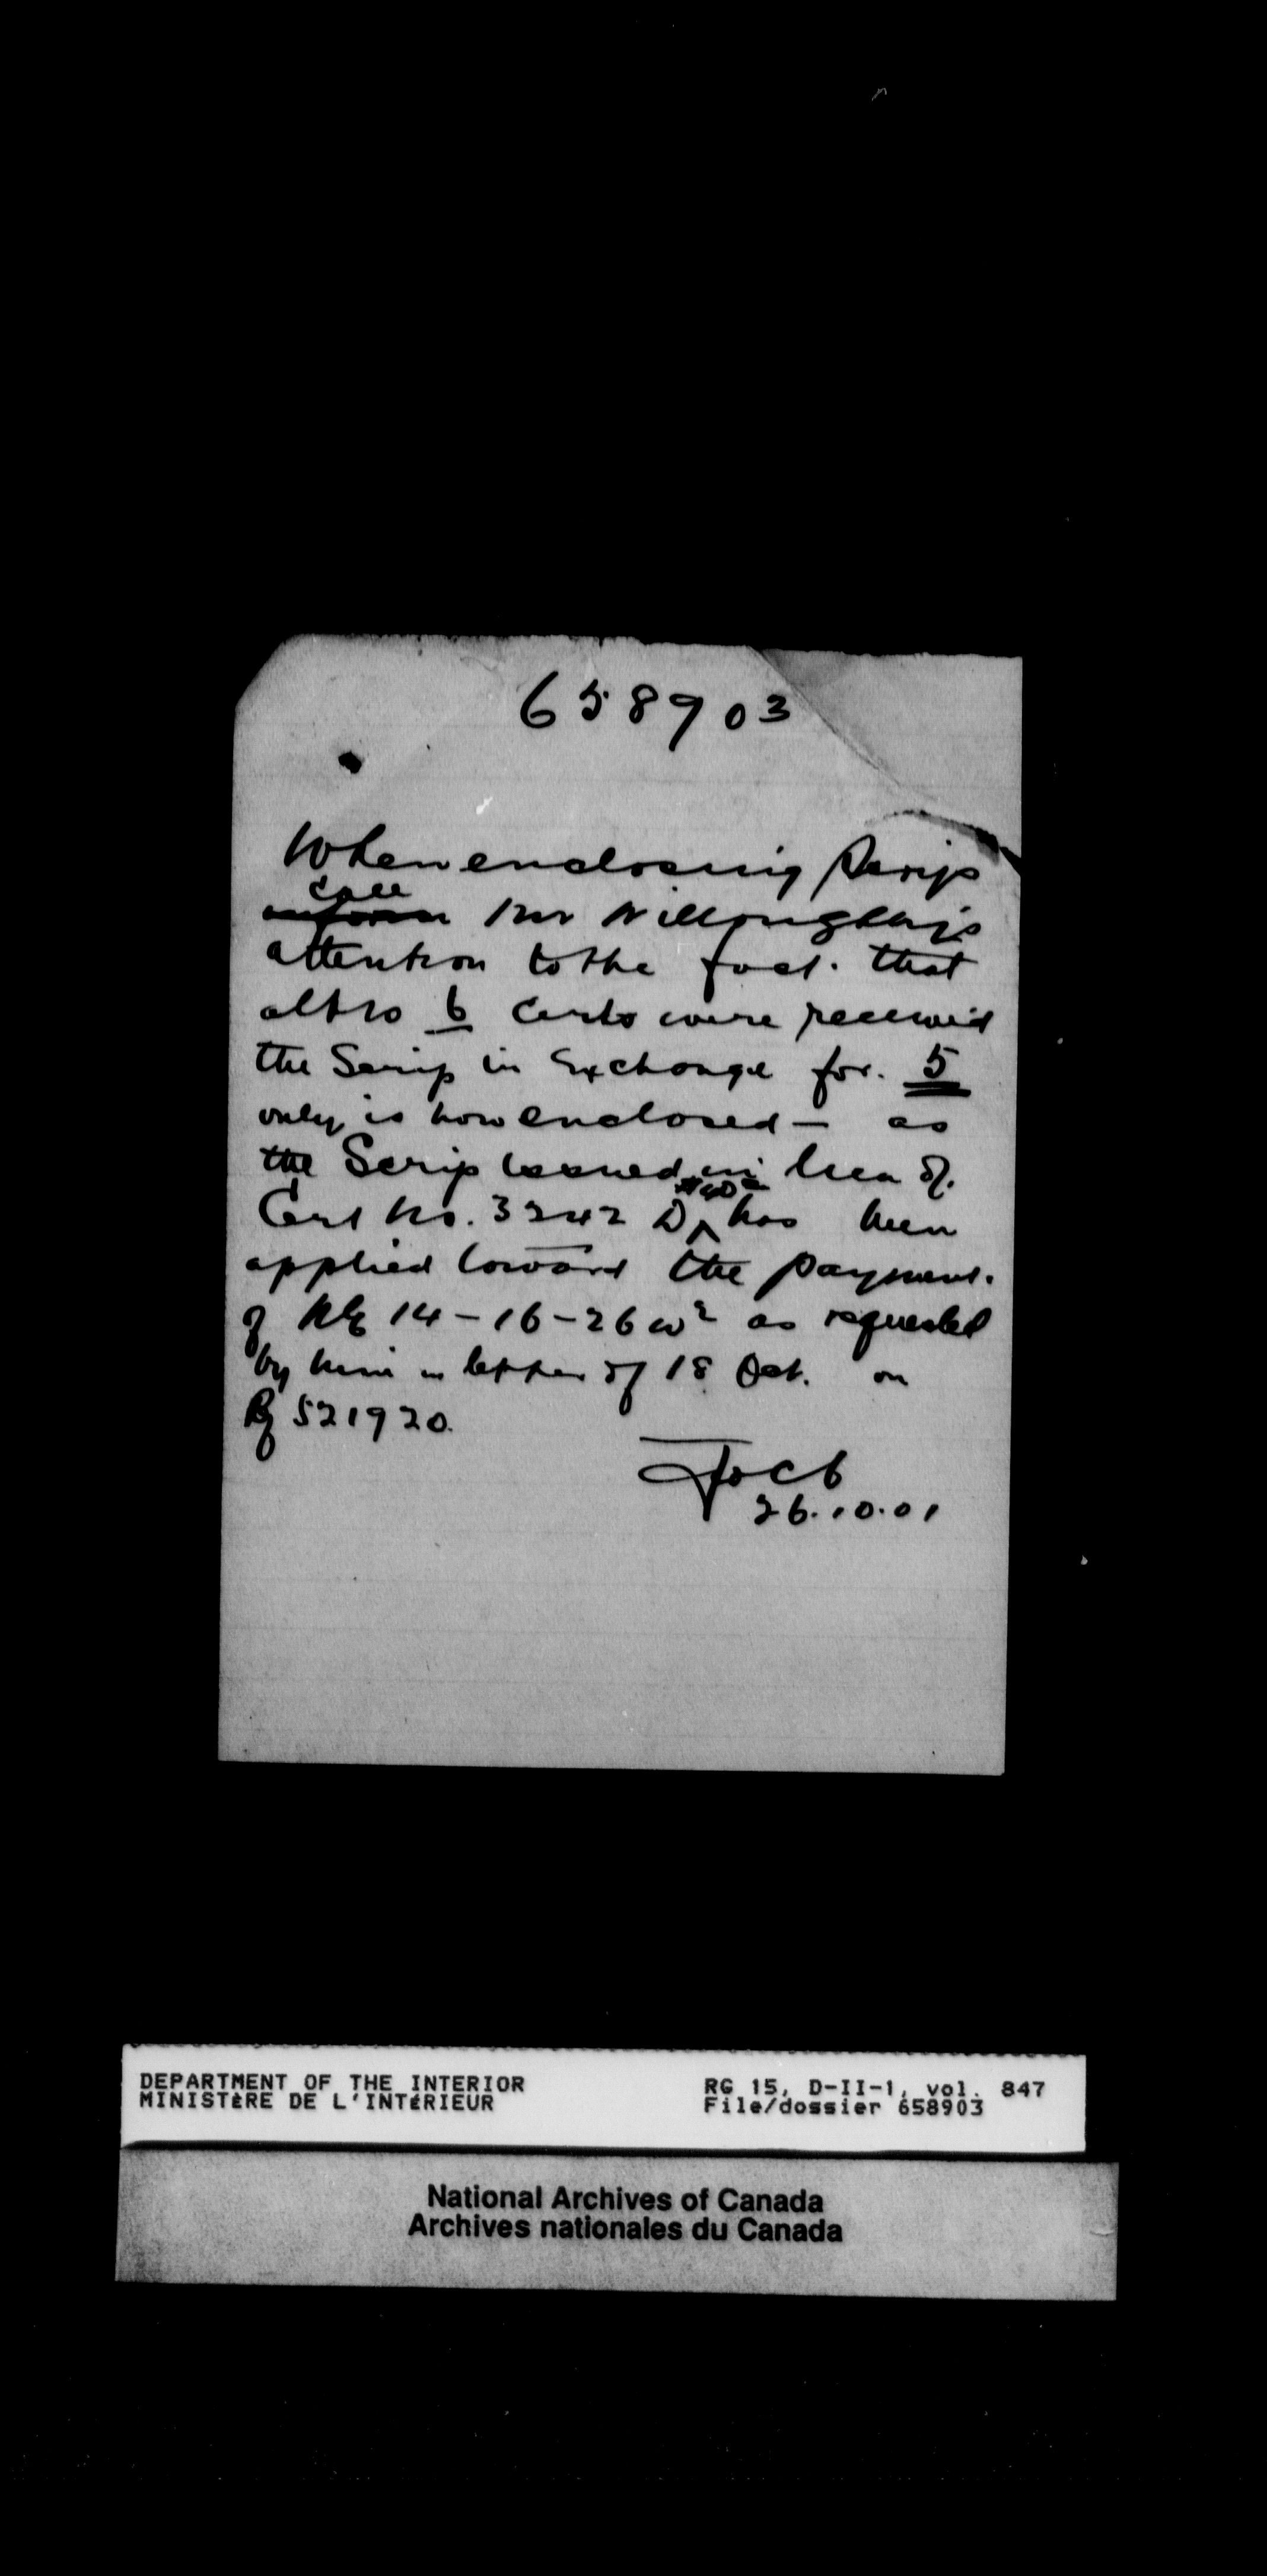 658903
When enclosing Scrip
call
inform Mr Willoughby's
attention to the fact. that
altho 6 Certs were received
the Scrip in Exchange for. 5
only is now enclosed — as
the Scrip issued in lieu of.
Cert No. 3242 D has been
applied toward the payment.
of NE 14-16-26 w2 as requested
by him in letter of 18 Oct. on
Rf 521920.
26.10.01
DEPARTMENT OF THE INTERIOR
MINISTÈRE DE L'INTÉRIEUR
RG 15, D-II-1, vol. 847
File/dossier 658903
National Archives of Canada
Archives nationales du Canada